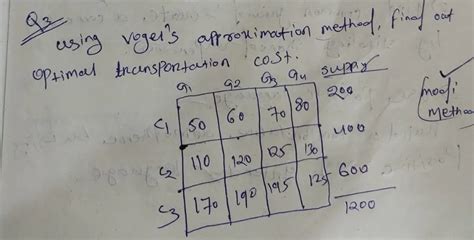 Q3
using Vogel's approximation method, find out
optimal transportation cost.
G1 G2 G3 G4 supply
C1 50 60 70 80 200
C2 110 120 125 130 400
C3 170 190 195 125 600
1200
modi
Method